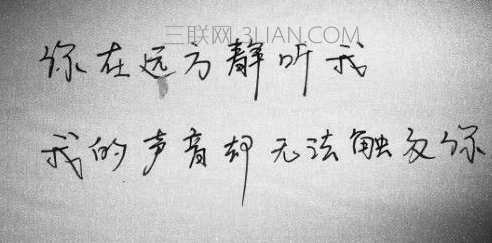 三联网 3LIAN.COM
你在远方静听我
我的声音却无法触及你